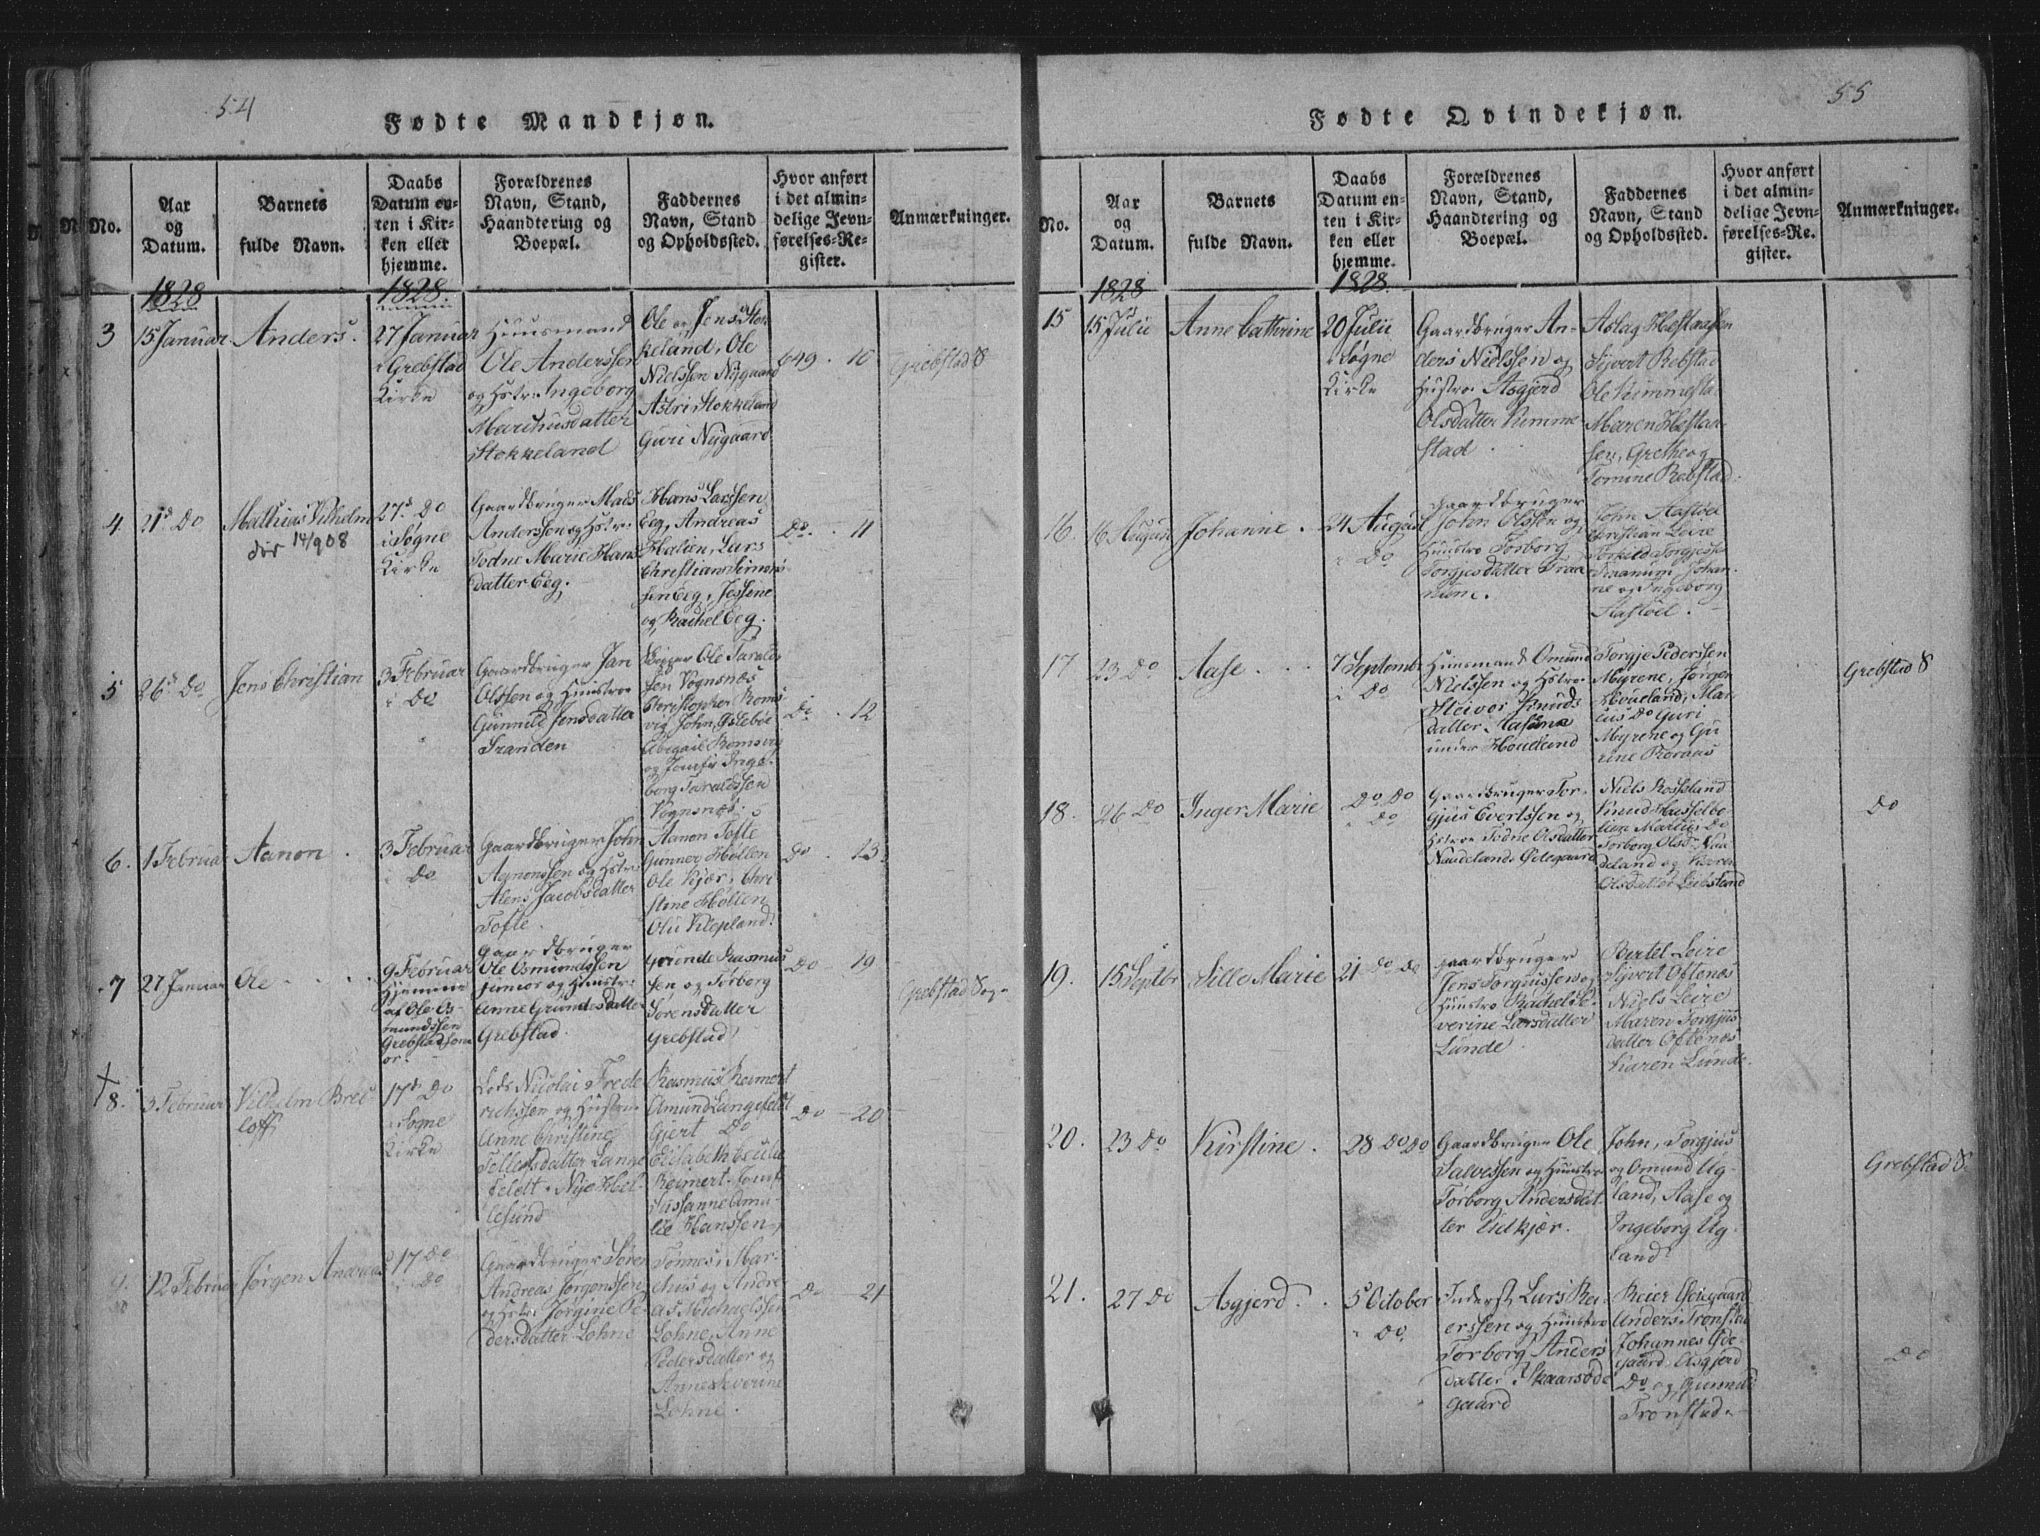 54
Fødte Mandkjøn.
No.
Aar
og
Datum.
Barnets
fulde Navn.
Daabs
Datum en-
ten i Kir-
ken eller
hjemme.
Forældrenes
Navn, Stand,
Haandtering og
Boepæl.
Faddernes
Navn, Stand
og Opholdssted.
Hvor anført
i det almin-
delige Jevn-
førelses-Re-
gister.
Anmærkninger.
1828
1828.
3
15 Januar
Anders.
27 Januar
i Grebstad
Kirke
Huusmand
Ole Anderssen
og Hstr. Ingeborg
Marchusdatter
Stokkeland
Ole og Jens Stok
keland, Ole
Nielssen Nygaard
Astri Stokkeland
Guri Nygaard
649. 10
Grebstad S
4
21d Do
Mathias Vilhelm
dør 14/9 08
27d Do
i Søgne
Kirke
Gaardbruger Mads
Anderssen og Hstr.
Todne Marie Hans
datter Eeg.
Hans Larssen
Eeg, Andreas
Lars
Christian Simons
sen Eeg, Jessine
og Rachel Eeg.
Do. 11
5
26d Do
Jens Christian
3 Februar
i Do
Gaardbruger Jan
Olssen og Huustroe
Gunnild Jensdatter
Tranden
Ole Taralds
sen Vognsnæs
Christopher Roms
vig, John
Abigail Romsvig
og Jomfr Inge-
borg Taraldssen
Vognsnæs.
Do. 12
6.
1 Februar
Aanon.
3 Februar
i Do
Gaardbruger John
Aanonssen og Hstr.
Jacobsdatter
Tofte.
Aanon Tofte
Gunner Høllen
Ole Kjær, Chri
stine Høllen
Klepland.
Do. 13.
7
27 Januar
Ole
9 Februar
Hjemme
af Ole Os-
mundssen
Grebstad
or.
Gaardbruger
Ole Osmundssen
junior og Huustr.
Anne Grundesdatter
Grebstad.
Grunde Rasmus
sen og Torborg
Sørensdatter
Grebstad.
Do 19
Grebstad Sog-
+
8.
3 Februar
Vilhelm
17d Do
i Sogne
Kirke
Lods Nicolai Frede
richssen og Huustru
Anne Christine
Tellefsdatter Lange
feldt. Nye Hel-
lesund
Rasmus Reimert
Amund Langefeldt
Gjert Do
Elisabeth Cecilie
Reimert. Jomf
Susanne
lie Hanssen.
Do 20
9.
12 Februar
Jørgen Andreas
17 Do
i Do
Gaardbruger Søren
Andreas Jørgenssen
og Hstr. Jørgine Pe
dersdatter Lohne
Tønnes, Mar-
chus og Andre-
as Michaelssen
Lohne, Anne
Pedersdatter og
Anne Severine
Lohne.
Do 21
55
Fødte Qvindekjøn.
No.
Aar
og
Datum.
Barnets
fulde Navn.
Daabs
Datum en-
ten i Kir-
ken eller
hjemme.
Forældrenes
Navn, Stand,
Haandtering og
Boepæl.
Faddernes
Navn, Stand
og Opholdssted.
Hvor anført
i det almin-
delige Jevn-
førelses-Re-
gister.
Anmærkninger.
1828
1828.
15
15 Julii
Anne Cathrine
20 Julii
i Søgne
Kirke
Gaardbruger An-
ders Nielssen og
Hustroe Asgjerd
Olsdatter Rimme
stad.
Aslag
Sjvert Rebstad
Ole Rimmesta
Maren
sen, Grethe og
Tomine Rebstad.
16.
16 August
Johanne.
24 August
i Do
Gaardbruger
John Olssen og
Huustroe Torborg
Torgjesdatter Traa
num.
John Aastøel
Christian Leire
Torkild Torgjesse
Traanum, Johan-
ne og Ingeborg
Aastøel.
17
23 Do
Aase
7 Septembr
i Do
Huusmand Omund
Nielssen og Hstroe
Knuds
datter
under Houeland
Torgje Pederssen
Myrene, Jørgen
Houeland, Mar-
cus Do Guri
Myrene og Gu
rine
Grebstad S
18.
26 Do
Inger Marie
Do Do
i Do
Gaardbruger Tor-
gjus Evertssen og
Hstroe Todne Olsdatter
Naudeland Ødegaard
Niels Rossland
Knud Hasselbo-
Do
Torborg Olsd Nau
deland og Karen
Olsdatter Leireland
Do
19.
15 Septbr
Sille Marie
21 Do Do
Gaardbruger
Jens Torgiussen og
Huustroe Rachel Se-
verine Larsdatter
Lunde.
Bertel Leire
Sjvert Oftenes
Niels Leire
Maren Torgjus-
datter Oftenes
Karen Lunde.
20.
23 Do
Kirstine.
28 Do Do
Gaardbruger Ole
Salvessen og Huustroe
Torborg Andersdat
ter Udkjær.
John, Torgjus
og Omund Ug-
land, Aase og
Ingeborg Ug-
land.
Grebstad S.
21.
27 Do
Asgjerd.
5 October
i Do
Inderst, Lars Rei-
erssen og Huustroe
Torborg Anders
datter, Skaarsøde
gaard
Reier Ødegaard
Anders Tronstad
Johannes Øde-
gaard, Asgjerd
Do og Gunnild
Tronstad.
Do